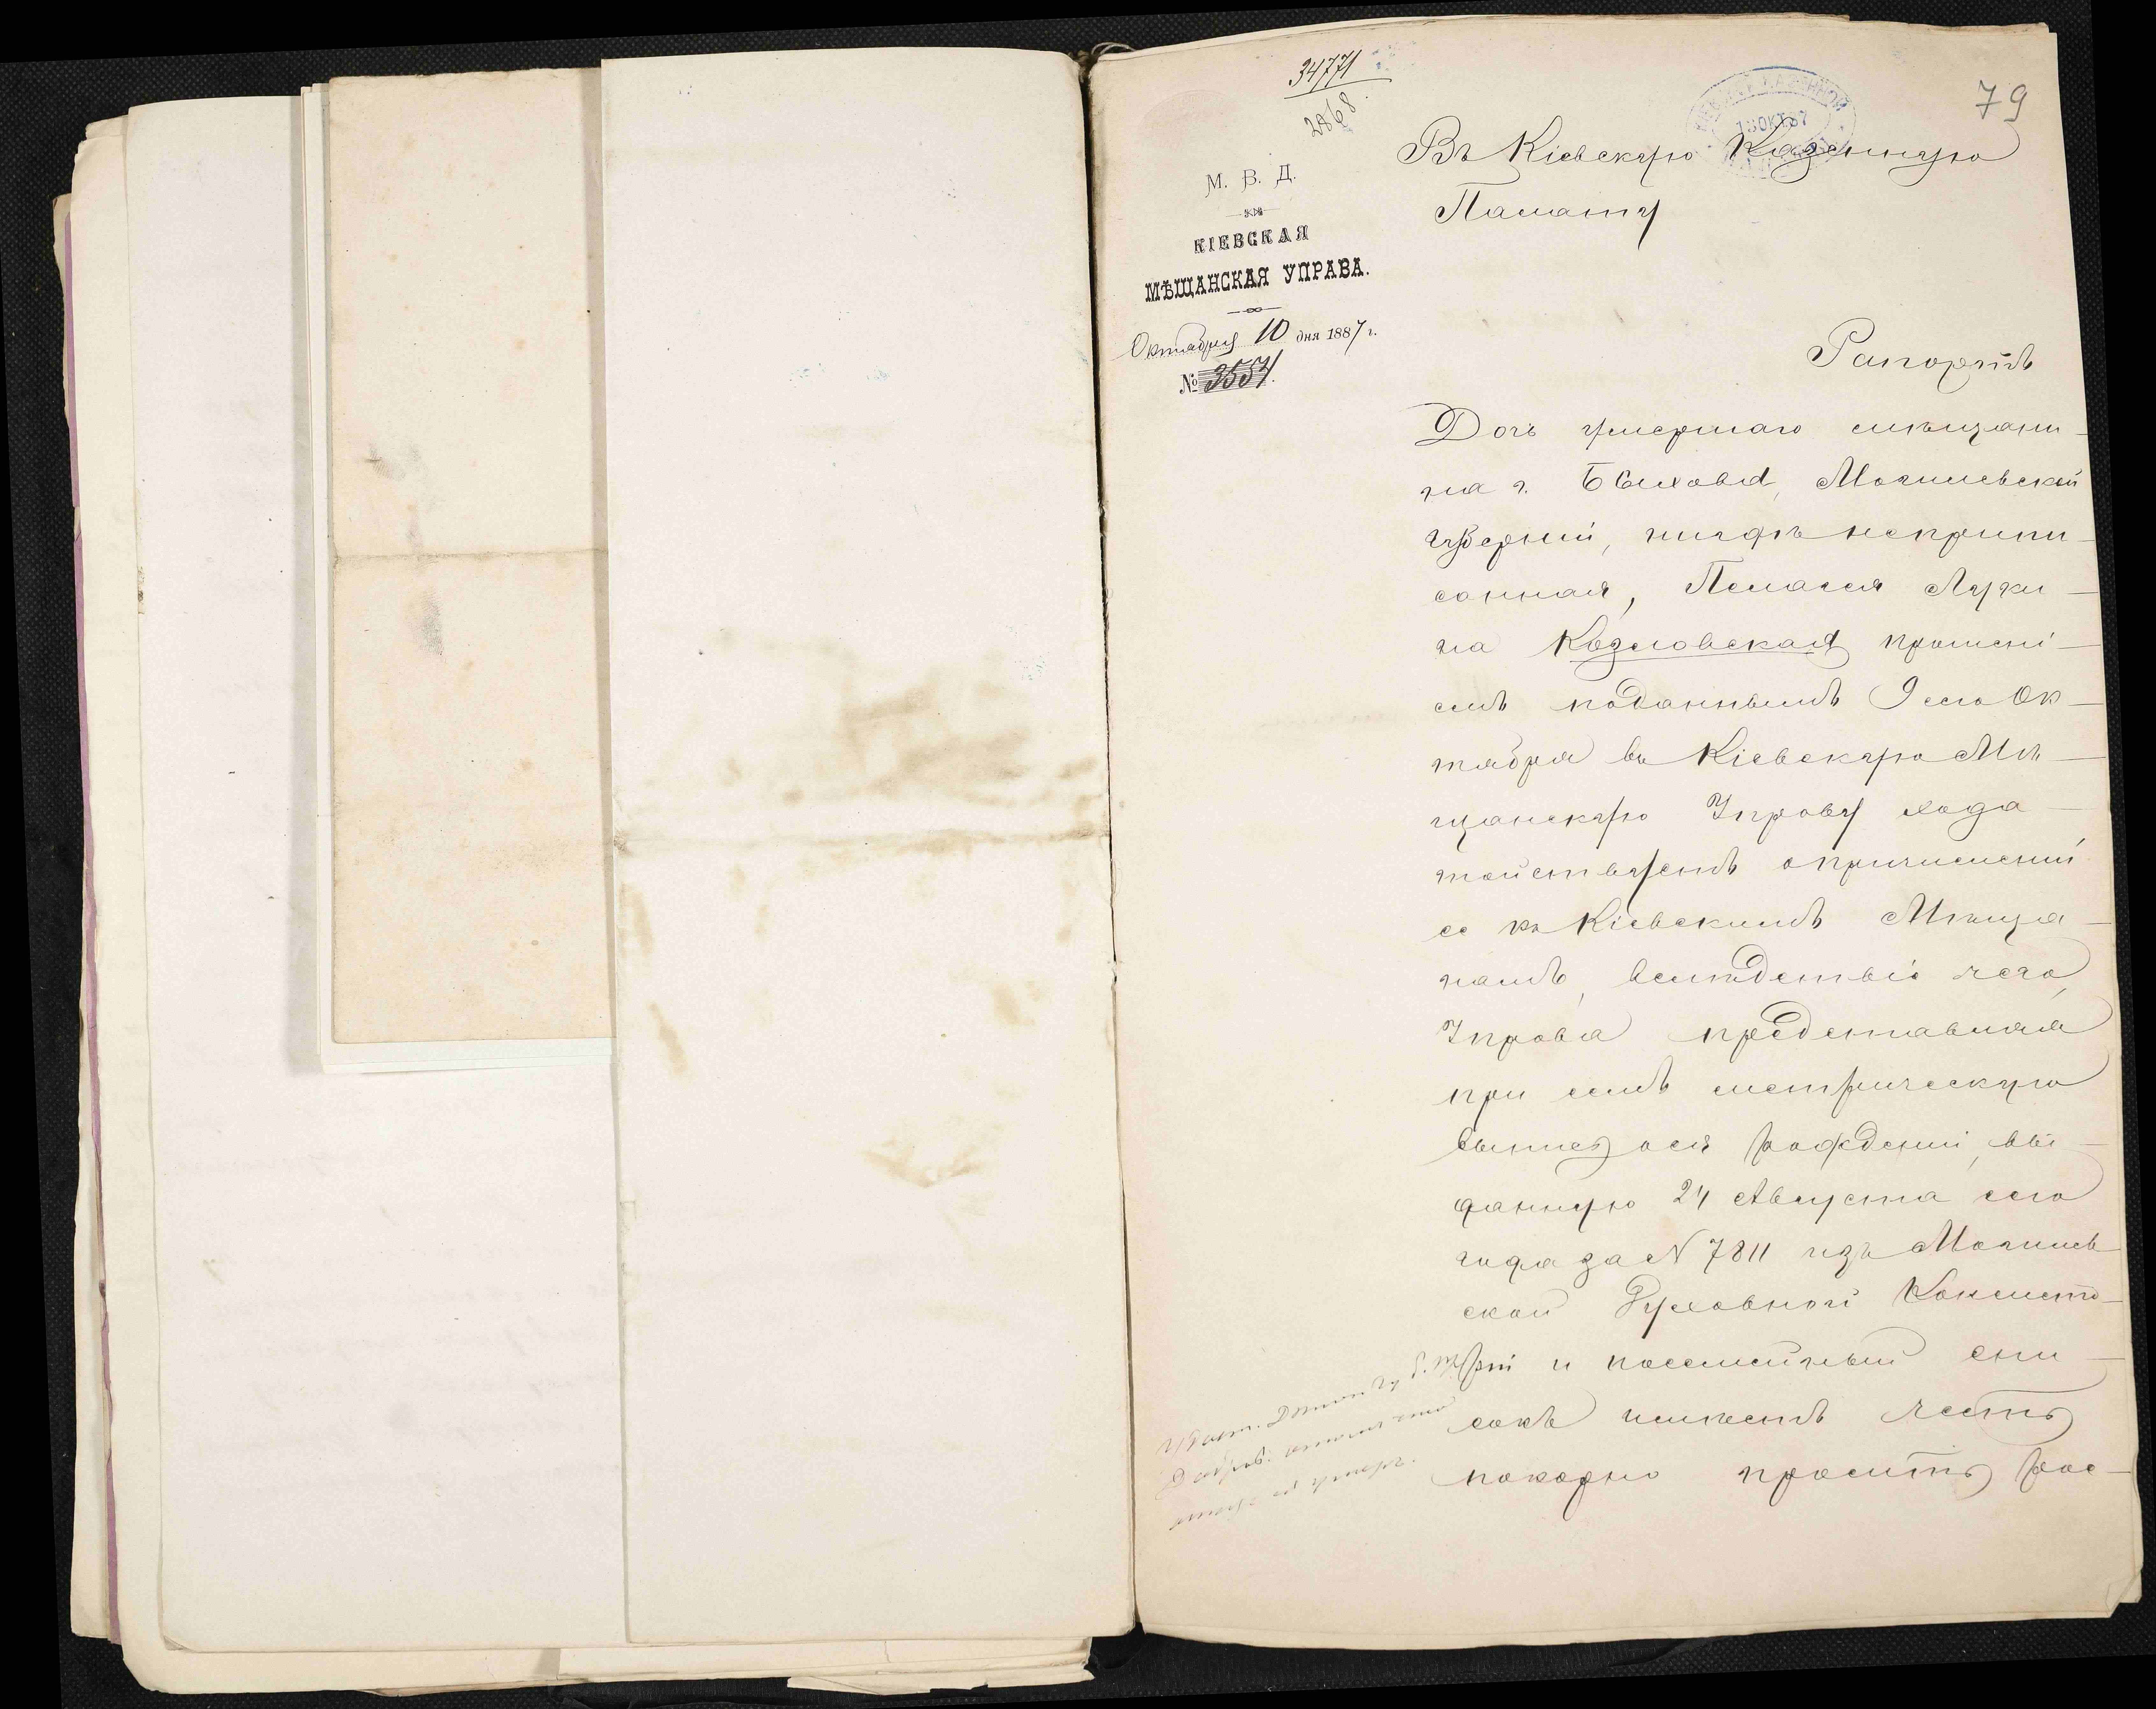 34771
2868
79
М. В. Д.
КІЕВСКАЯ
МѢЩАНСКАЯ УПРАВА.
Октября 10 дня 1887 г.
№ 3554.
Въ Кіевскую Казенную
Палату
Рапортъ
Дочь умершаго мѣщани-
на г. Быхова, Могилевской
губерніи, нигдѣ неприпи-
санная, Пелагея Луки-
на Козловская прошені-
емъ поданнымъ 9 сего Ок-
тября въ Кіевскую Мѣ-
щанскую Управу хода-
тайствуетъ о причисленіи
ее къ Кіевскимъ Мѣща-
намъ, вслѣдствіе чего,
Управа представляя
при семъ метрическую
выпись о ея рожденіи, вы-
данную 24 Августа сего
года за N 7811 изъ Могилев-
ской Духовной Консисто-
ріи и посемейный спи-
сокъ имѣетъ честь
покорно просить рас-